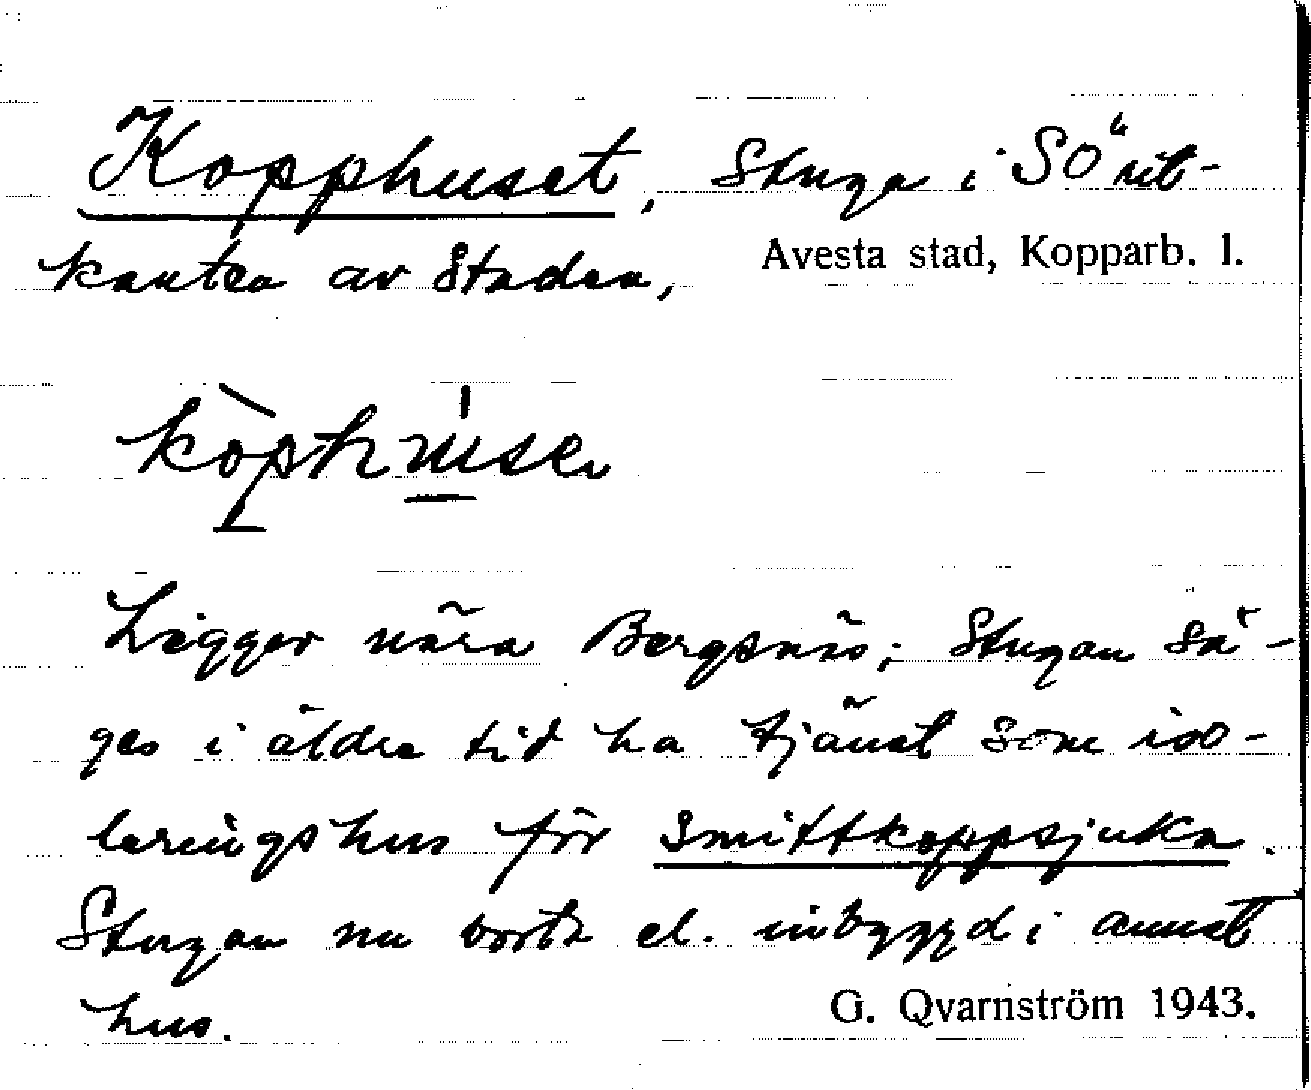 Kopphuset, Stuga i SÖ ut-
kanten av staden,
Avesta stad, Kopparb. l.
kòphúse
Ligger nära Bergsnäs; Stugan sä-
ges i äldre tid ha tjänat som iso-
leringshus för smittkoppsjuka.
Stugan nu borta el. inbyggd i annat
hus.
G. Qvarnström 1943.